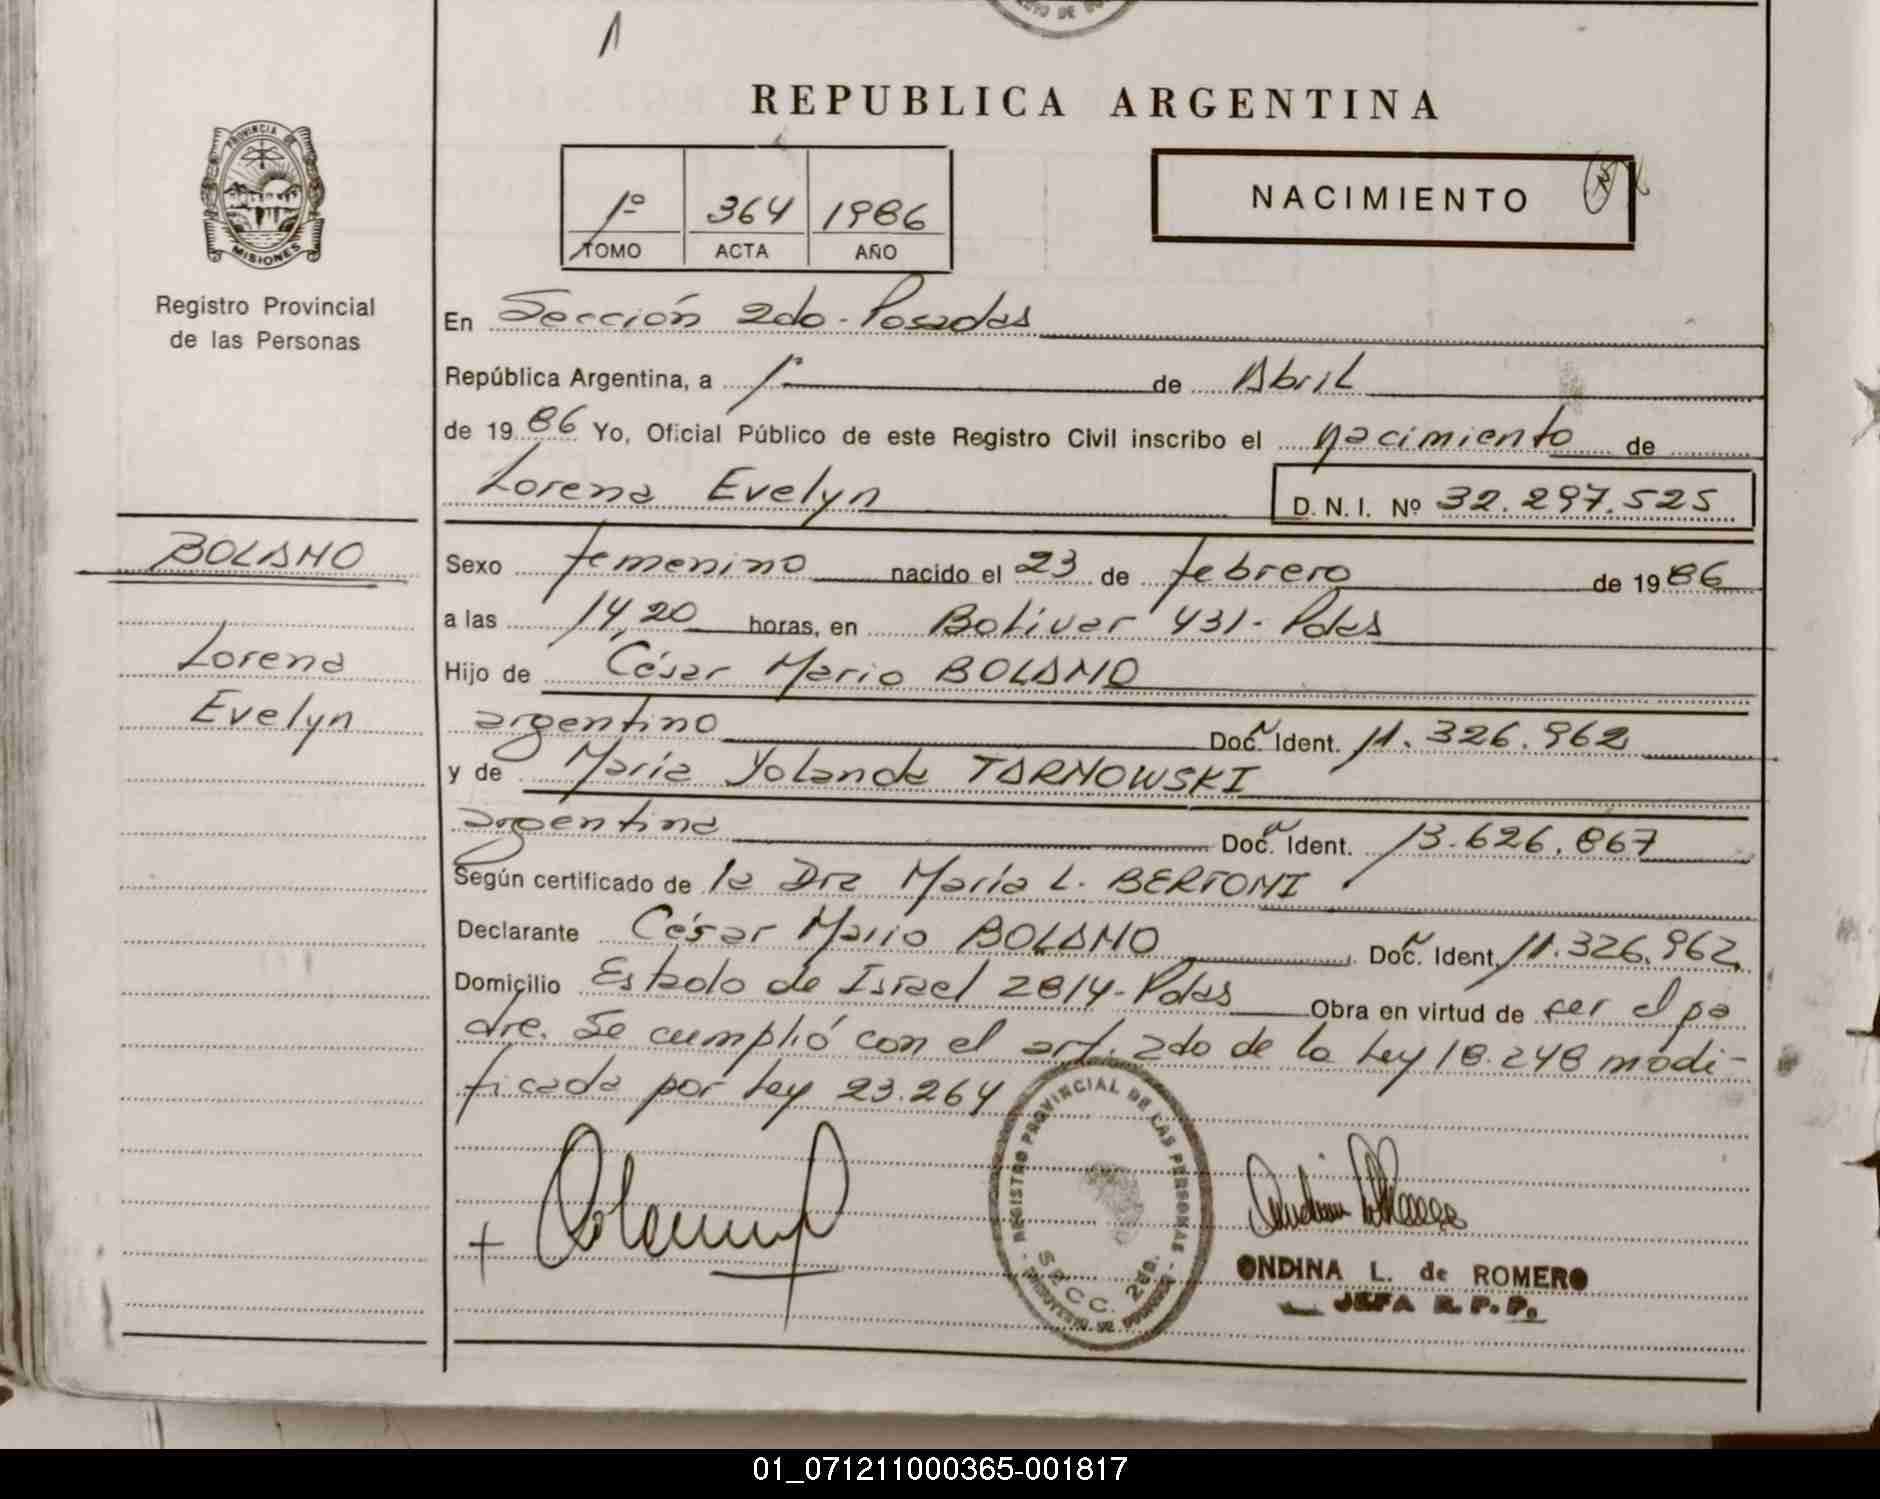 1
REPUBLICA ARGENTINA
PROVINCIA DE
MISIONES
Registro Provincial
de las Personas
1º 364 1986
TOMO ACTA AÑO
NACIMIENTO
En Sección 2do - Posadas
República Argentina, a 1º de Abril
de 1986 Yo, Oficial Público de este Registro Civil inscribo el nacimiento de
Lorena Evelyn D. N. I. Nº 32.297.525
BOLANO
Lorena
Evelyn
Sexo femenino nacido el 23 de febrero de 1986
a las 14,20 horas, en Bolívar 431 - Pdas
Hijo de César Mario BOLANO
argentino Doc. Ident. 11.326.962
y de María Yolanda TARNOWSKI
argentina Doc. Ident. 13.626.867
Según certificado de la Dra María L. BERTONI
Declarante César Mario BOLANO Doc. Ident. 11.326.962
Domicilio Estado de Israel 2814 - Pdas Obra en virtud de ser el pa
dre. Se cumplió con el art. 2do de la Ley 18.248 modi-
ficada por Ley 23.264
REGISTRO PROVINCIAL DE LAS PERSONAS
SECC. 2da.
ONDINA L. de ROMERO
JEFA R. P. P.
01_071211000365-001817